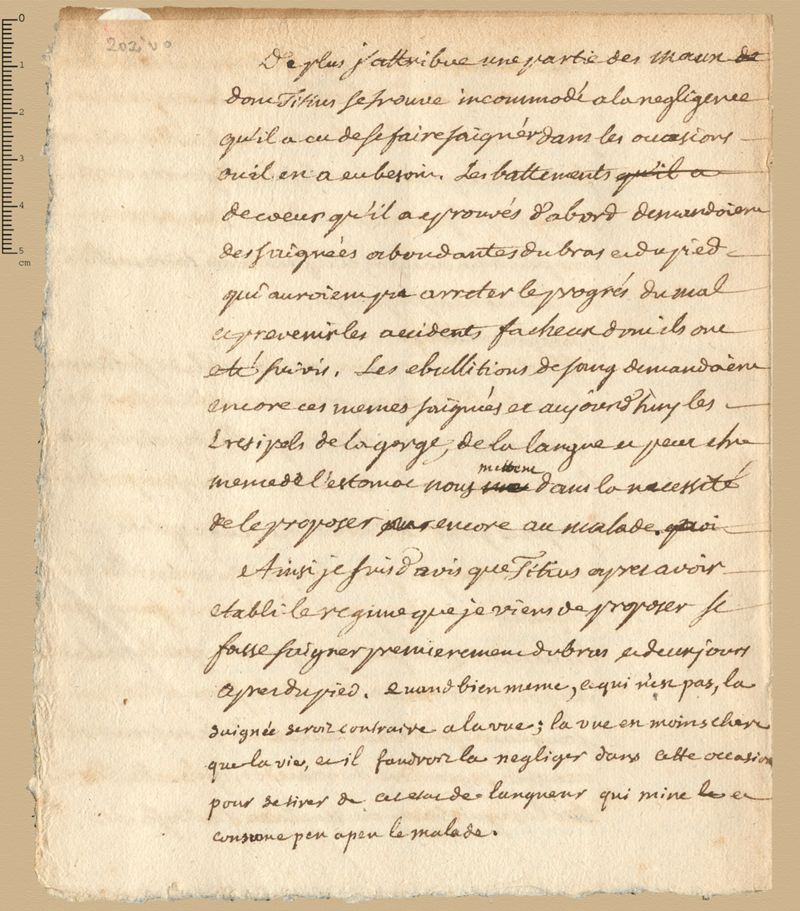 202 vo
De plus j'attribue une partie des maux de
dont Titius se trouve incommodé a la negligence
qu'il a eu de se faire saigner dans les occasions
ou il en a eu besoin. Les battements qu'il a
de coeur qu'il a eprouvés d'abord demandoient
des saignées abondantes du bras et du pied
qui auroient pu arreter le progrés du mal
et prevenir les accidents facheux dont ils ont
eté suivis. Les ebullitions de sang demandoient
encore ces memes saignées et aujourd'huy les
Eresipels de la gorge, de la langue et peut etre
meme de l'estomac nous mettent dans la necessité
de le proposer encore au malade. quoi
Ainsi je suis d'avis que Titius apres avoir
etabli le regime que je viens de proposer se
fasse saigner premierement du bras et deux jours
apres du pied. Quand bien meme, ce qui n'est pas, la
saignée seroit contraire a la vue; la vue est moins chere
que la vie, et il faudroit la negliger dans cette occasion
pour se tirer de cet etat de langueur qui mine le et
consome peu a peu le malade.
0
1
2
3
4
5
cm